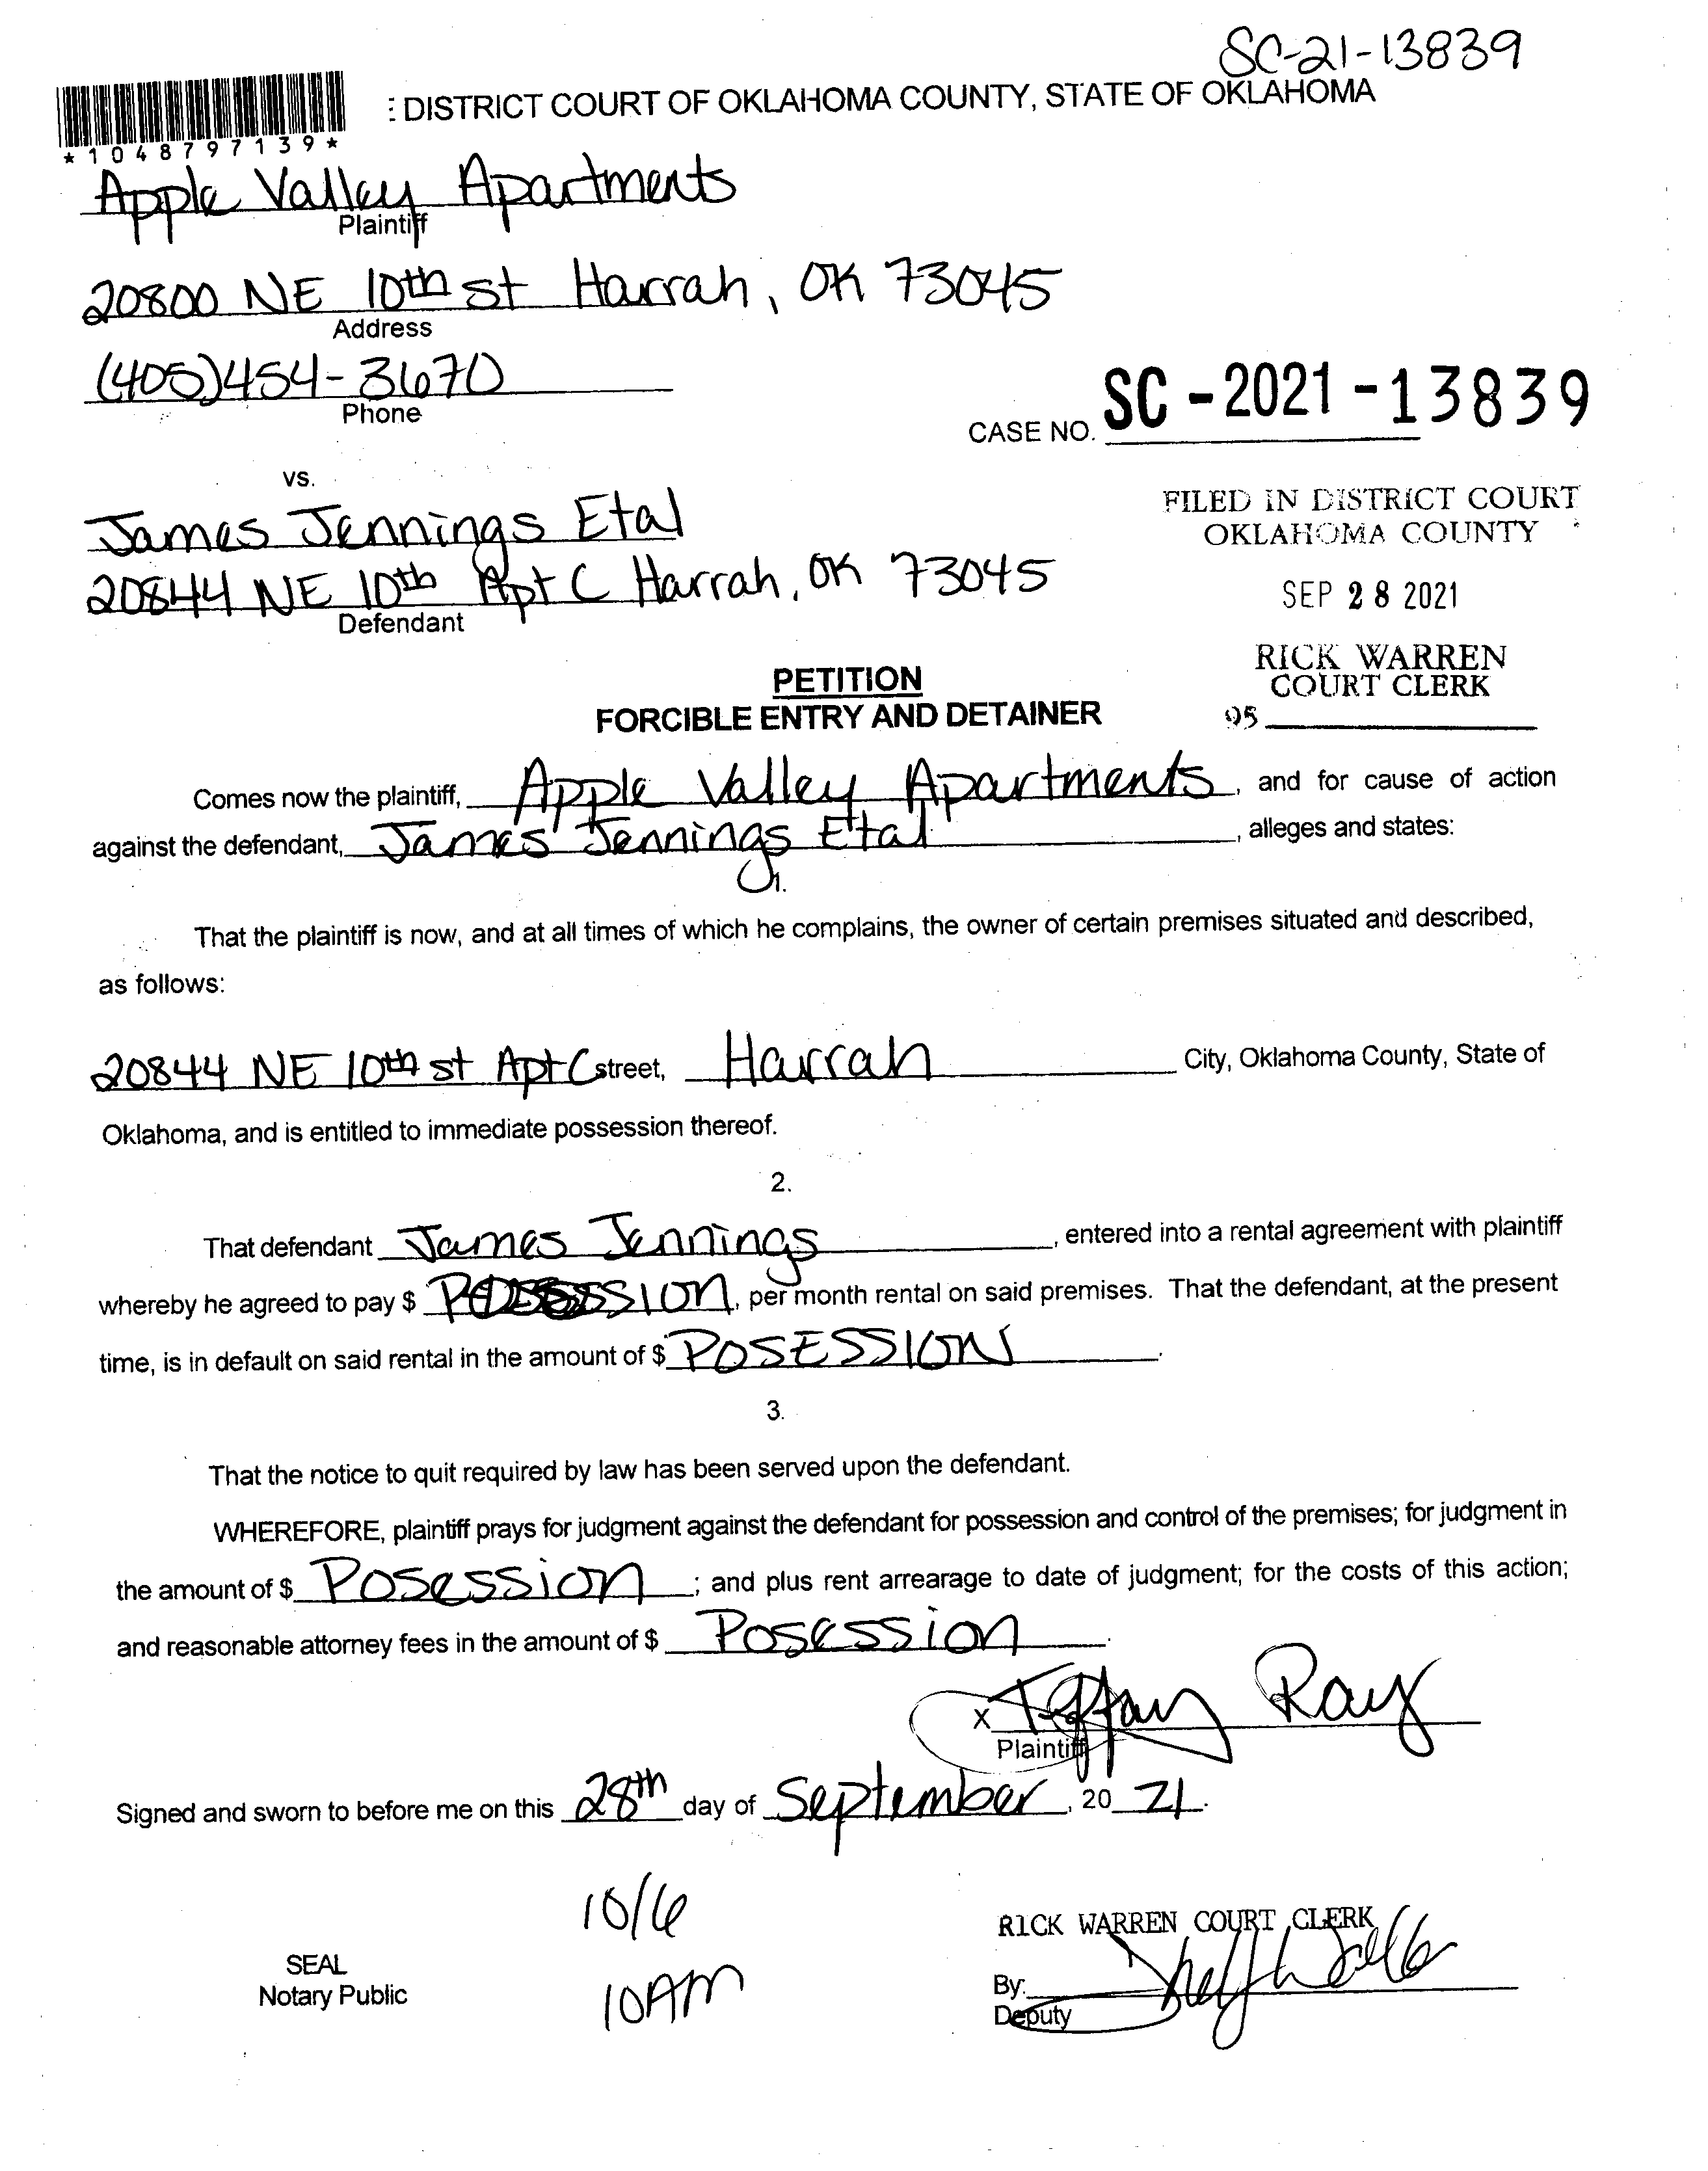 SC-21-13839
: DISTRICT COURT OF OKLAHOMA COUNTY, STATE OF OKLAHOMA
*1048797139*
Apple Valley Apartments
Plaintiff
20800 NE 10th st Harrah, OK 73045
Address
(405)454-3670
Phone
CASE NO. SC-2021-13839
vs.
James Jennings Etal
20844 NE 10th Apt C Harrah, OK 73045
Defendant
FILED IN DISTRICT COURT
OKLAHOMA COUNTY
SEP 28 2021
RICK WARREN
COURT CLERK
95
PETITION
FORCIBLE ENTRY AND DETAINER
Comes now the plaintiff, Apple Valley Apartments, and for cause of action
against the defendant, James Jennings Etal, alleges and states:
1.
That the plaintiff is now, and at all times of which he complains, the owner of certain premises situated and described,
as follows:
20844 NE 10th st Apt C street, Harrah City, Oklahoma County, State of
Oklahoma, and is entitled to immediate possession thereof.
2.
That defendant James Jennings, entered into a rental agreement with plaintiff
whereby he agreed to pay $ , per month rental on said premises. That the defendant, at the present
time, is in default on said rental in the amount of $ POSESSION.
3.
That the notice to quit required by law has been served upon the defendant.
WHEREFORE, plaintiff prays for judgment against the defendant for possession and control of the premises; for judgment in
the amount of $ Posession; and plus rent arrearage to date of judgment; for the costs of this action;
and reasonable attorney fees in the amount of $ Posession.
X Tiffany Ray
Plaintiff
Signed and sworn to before me on this 28th day of September, 20 21.
10/6
10AM
SEAL
Notary Public
RICK WARREN COURT CLERK
By:
Deputy